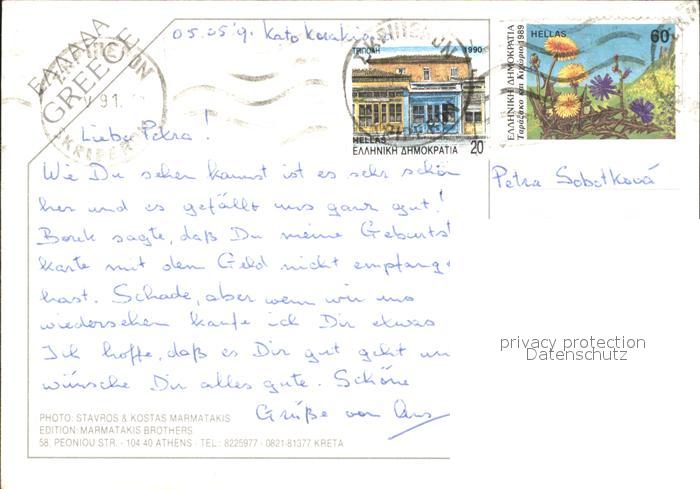 ΕΛΛΑΔΑ
GREECE
91.
05.05.91. Kato
ΤΡΙΠΟΛΗ 1990
HELLAS 20
ΕΛΛΗΝΙΚΗ ΔΗΜΟΚΡΑΤΙΑ
HELLAS 60
ΕΛΛΗΝΙΚΗ ΔΗΜΟΚΡΑΤΙΑ
Ταράξακο και Κιχώριο 1989
Liebe Petra!
Wie Du sehen kannst ist es sehr schön
hier und es gefällt uns ganz gut!
sagte, daß Du meine Geburts
karte mit dem Geld nicht empfang
hast. Schade, aber wenn wir uns
wiedersehen kaufe ich Dir etwas
Ich hoffe, daß es Dir gut geht un
wünsche Dir alles gute. Schöne
Grüße von Uns
Petra Sobotková
privacy protection
Datenschutz
PHOTO: STAVROS & KOSTAS MARMATAKIS
EDITION: MARMATAKIS BROTHERS
58, PEONIOU STR. - 104 40 ATHENS - TEL.: 8225977 - 0821-81377 KRETA